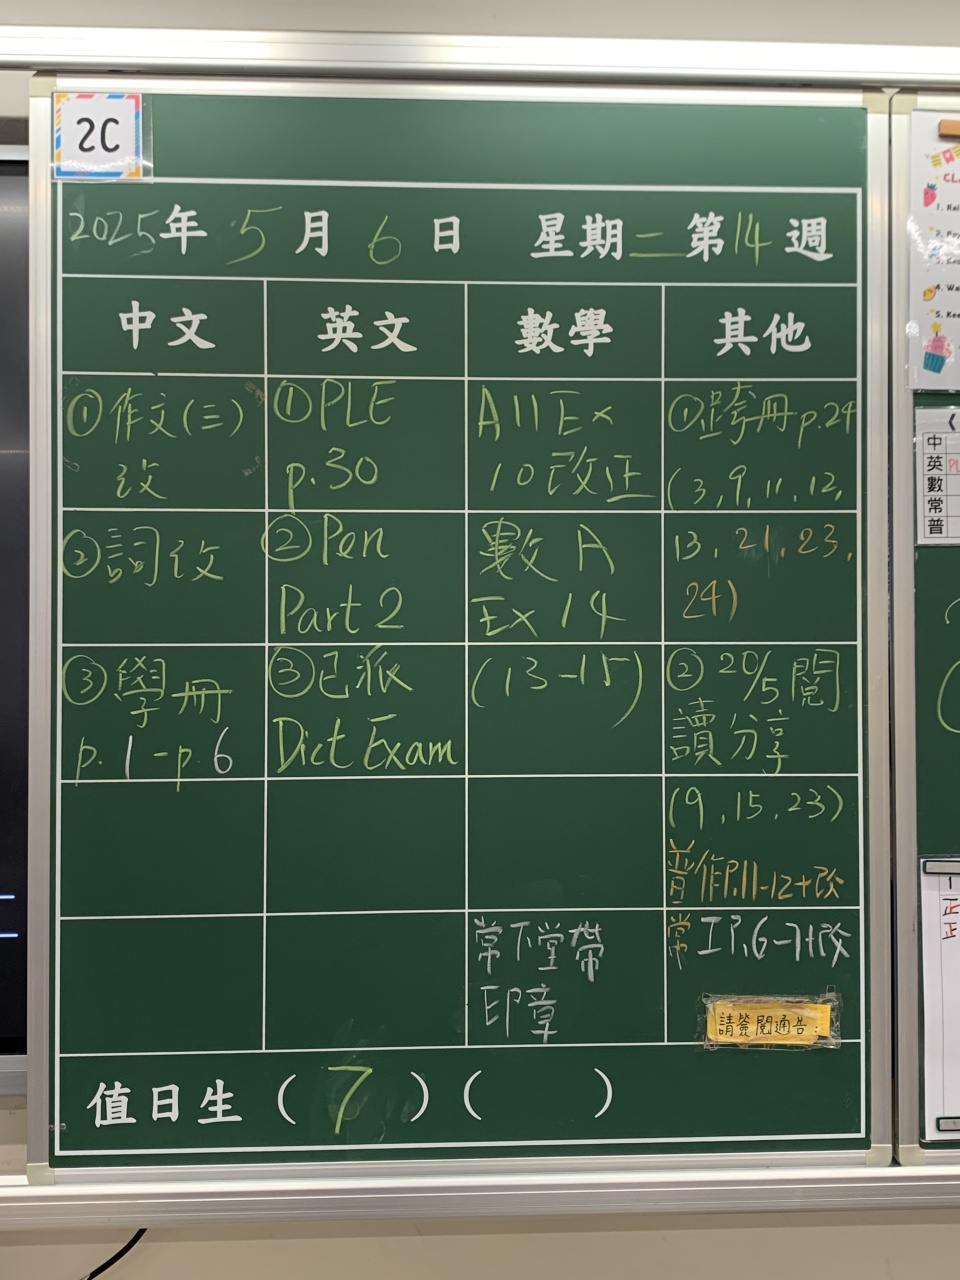 2C
2025年 5月 6日 星期二 第14週
中文 英文 數學 其他
①作文(三)
改
②詞改
③學冊
p.1-p.6
①PLE
p.30
②Pen
Part 2
③已派
Dict Exam
A11 Ex
10改正
數A
Ex 14
(13-15)
常下堂帶
印章
①跨冊p.24
(3,9,11,12,
13,21,23,
24)
②20/5閱
讀分享
(9,15,23)
普作P.11-12+改
常工P.6-7+改
請簽閱通告:
值日生(7)( )
中
英
數
常
普